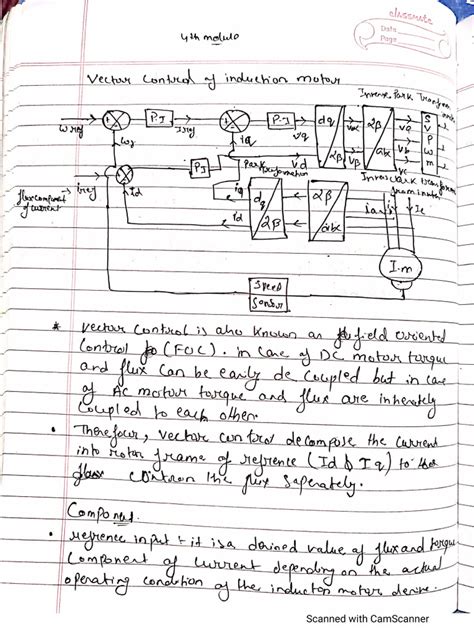 classmate
Date
Page
4th module
Vector Control of induction motor
Inverse Park Transform
ωref
PI
Iref
PI
Vq
dq
αβ
Vα
Vβ
αβ
abc
Va
Vb
Vc
S
V
P
W
M
ωr
iq
Vd
iref
PI
Park
Transformation
flux component
of current
id
iq
id
dq
αβ
αβ
abc
ia
Ic
I.m
Speed
Sensor
* Vector Control is also known as field oriented
Control (FOC). in case of DC motor torque
and flux can be easily de coupled but in case
of AC motor torque and flux are inherately
Coupled to each other.
• Therefour, vector control decompose the current
into rotor frame of refrence (Id & Iq) to
the flux saperately.
Component
• refrence input :- it is a desired value of flux and torque
Component of current depending on the actual
operating condition of the induction motor derive.
Scanned with CamScanner